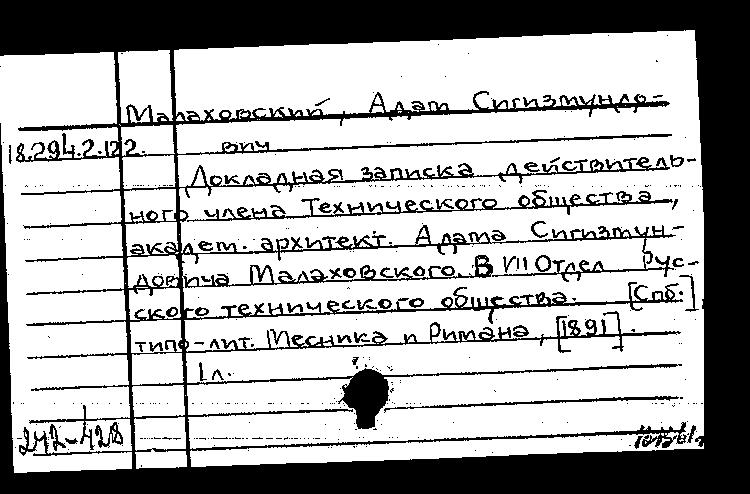 Малаховский, Адам Сигизмундо-
18.294.2.122. вич
Докладная записка действитель-
ного члена Технического общества,
академ. архитект. Адама Сигизмун-
довича Малаховского. В VII Отдел Рус-
ского технического общества. [Спб.],
типо-лит. Месника и Римана, [1891].
1 л.
242-428